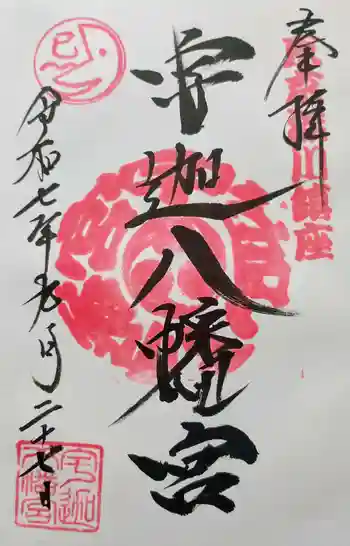 奉拝
川鎮座
宇迦八幡宮
令和七年九月二十七日
宇迦八幡宮